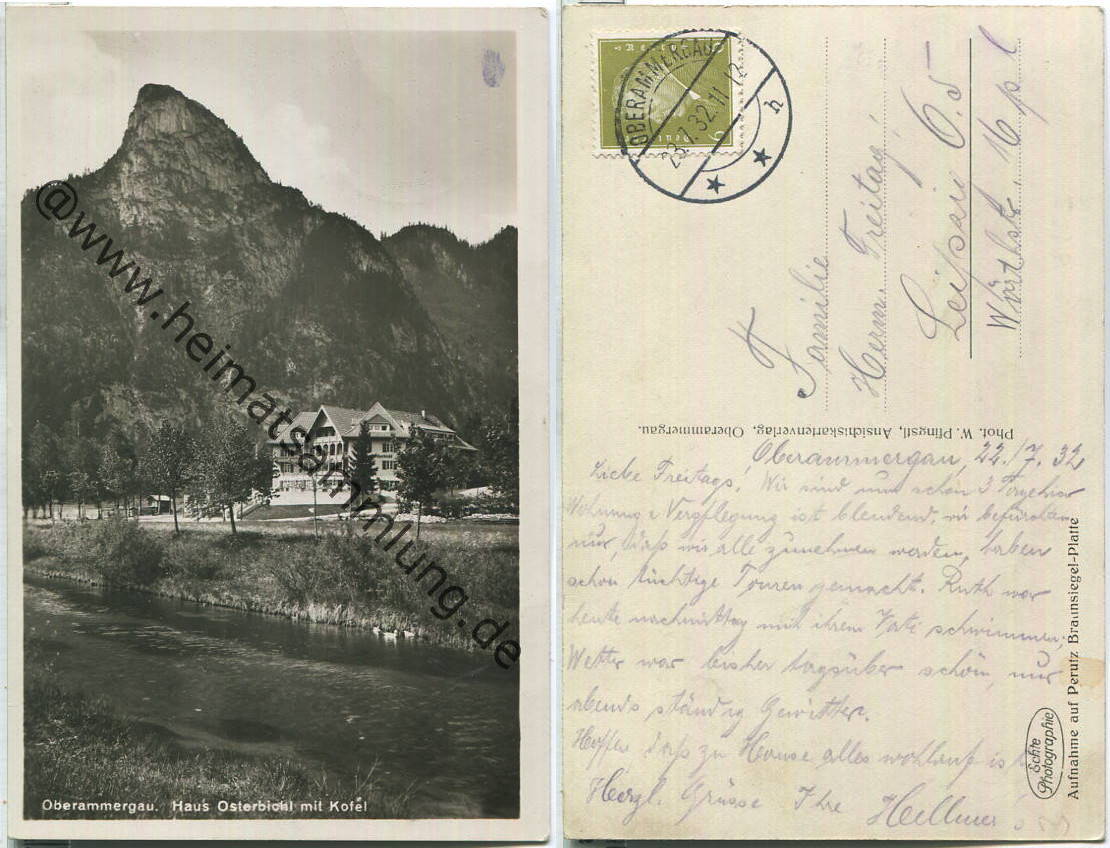 @www.heimatsammlung.de
Oberammergau. Haus Osterbichl mit Kofel
OBERAMMERGAU
23.7.32.11-12
h
Familie
Herm. Freitag
Leipzig O.5
Wörthstr. 16 pl
Phot. W. Pfingstl, Ansichtskartenverlag, Oberammergau.
Oberammergau, 22./7. 32
Liebe Freitags! Wir sind nun schon 3 Tage hier
Wohnung u Verpflegung ist blendend, wir befürchten
nur, daß wir alle zunehmen werden, haben
schon tüchtige Touren gemacht. Ruth war
heute nachmittag mit ihrem Vati schwimmen,
Wetter war bisher tagsüber schön, nur
abends ständig Gewitter.
Hoffe daß zu Hause alles wohlauf ist
Herzl. Grüsse Ihre Hellmer
Echte
Photographie
Aufnahme auf Perutz Braunsiegel-Platte